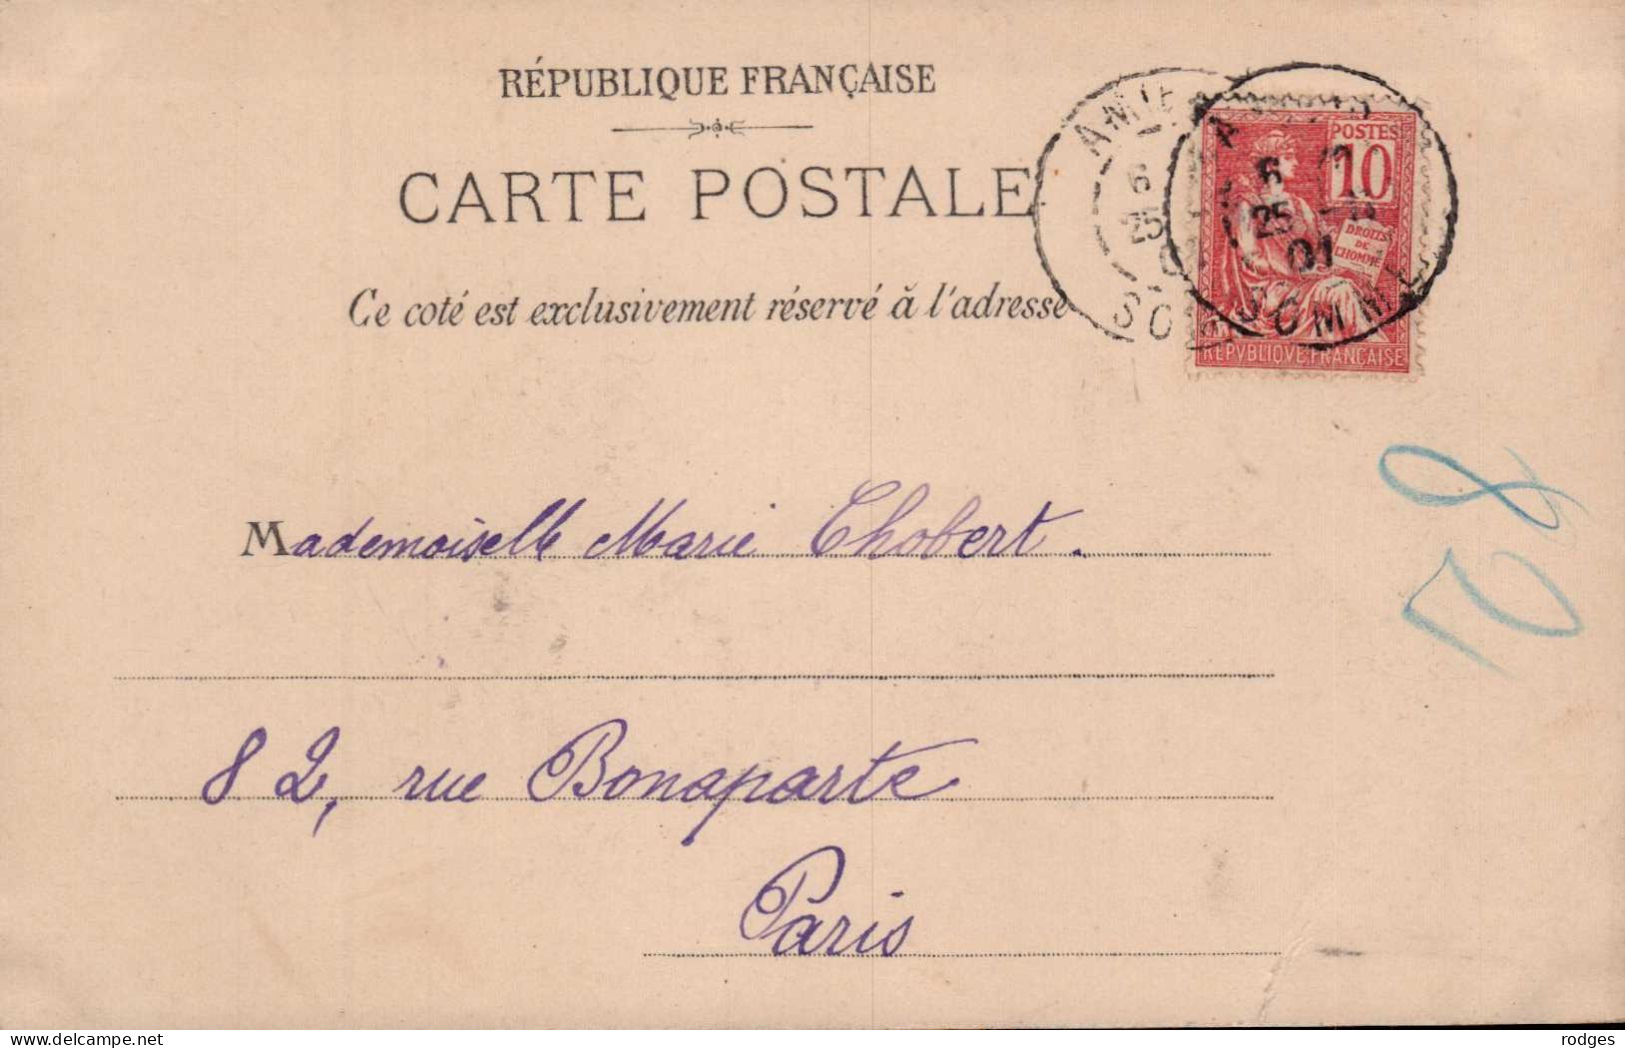 RÉPUBLIQUE FRANÇAISE
CARTE POSTALE
Ce coté est exclusivement réservé à l'adresse
POSTES
10
DROITS
DE
L'HOMME
REPVBLIQVE FRANÇAISE
6
25
01
SOMME
6
25
Mademoiselle Marie Chobert.
82, rue Bonaparte
Paris
82
delcampe.net
rodges